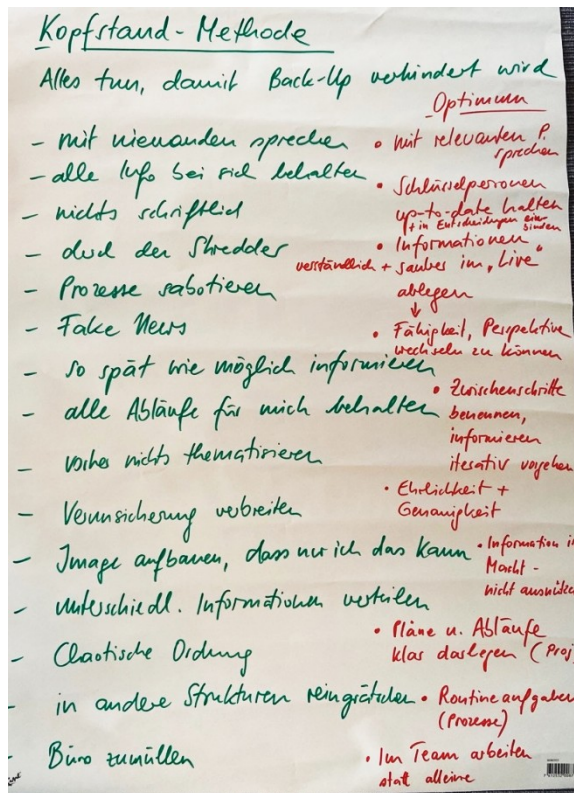 Kopfstand-Methode
Alles tun, damit Back-Up verhindert wird
- mit niemanden sprechen
- alle Info bei sich behalten
- nichts schriftlich
- durch den Shredder
- Prozesse sabotieren
- Fake News
- so spät wie möglich informieren
- alle Abläufe für mich behalten
- vorher nichts thematisieren
- Verunsicherung verbreiten
- Image aufbauen, dass nur ich das kann
- unterschiedl. Informationen verteilen
- Chaotische Ordnung
- in andere Strukturen reingrätschen
- Büro zumüllen
Optimum
• mit relevanten P.
sprechen
• Schlüsselpersonen
up-to-date halten
+ in Entscheidungen ein-
binden
• Informationen
verständlich + sauber im "Live"
ablegen
↓
• Fähigkeit, Perspektive
wechseln zu können
• Zwischenschritte
benennen,
informieren
iterativ vorgehen
• Ehrlichkeit +
Genauigkeit
• Information i
Macht -
nicht ausnütze
• Pläne u. Abläufe
klar darlegen (Proj
• Routineaufgaben
(Prozesse)
• Im Team arbeiten
statt alleine